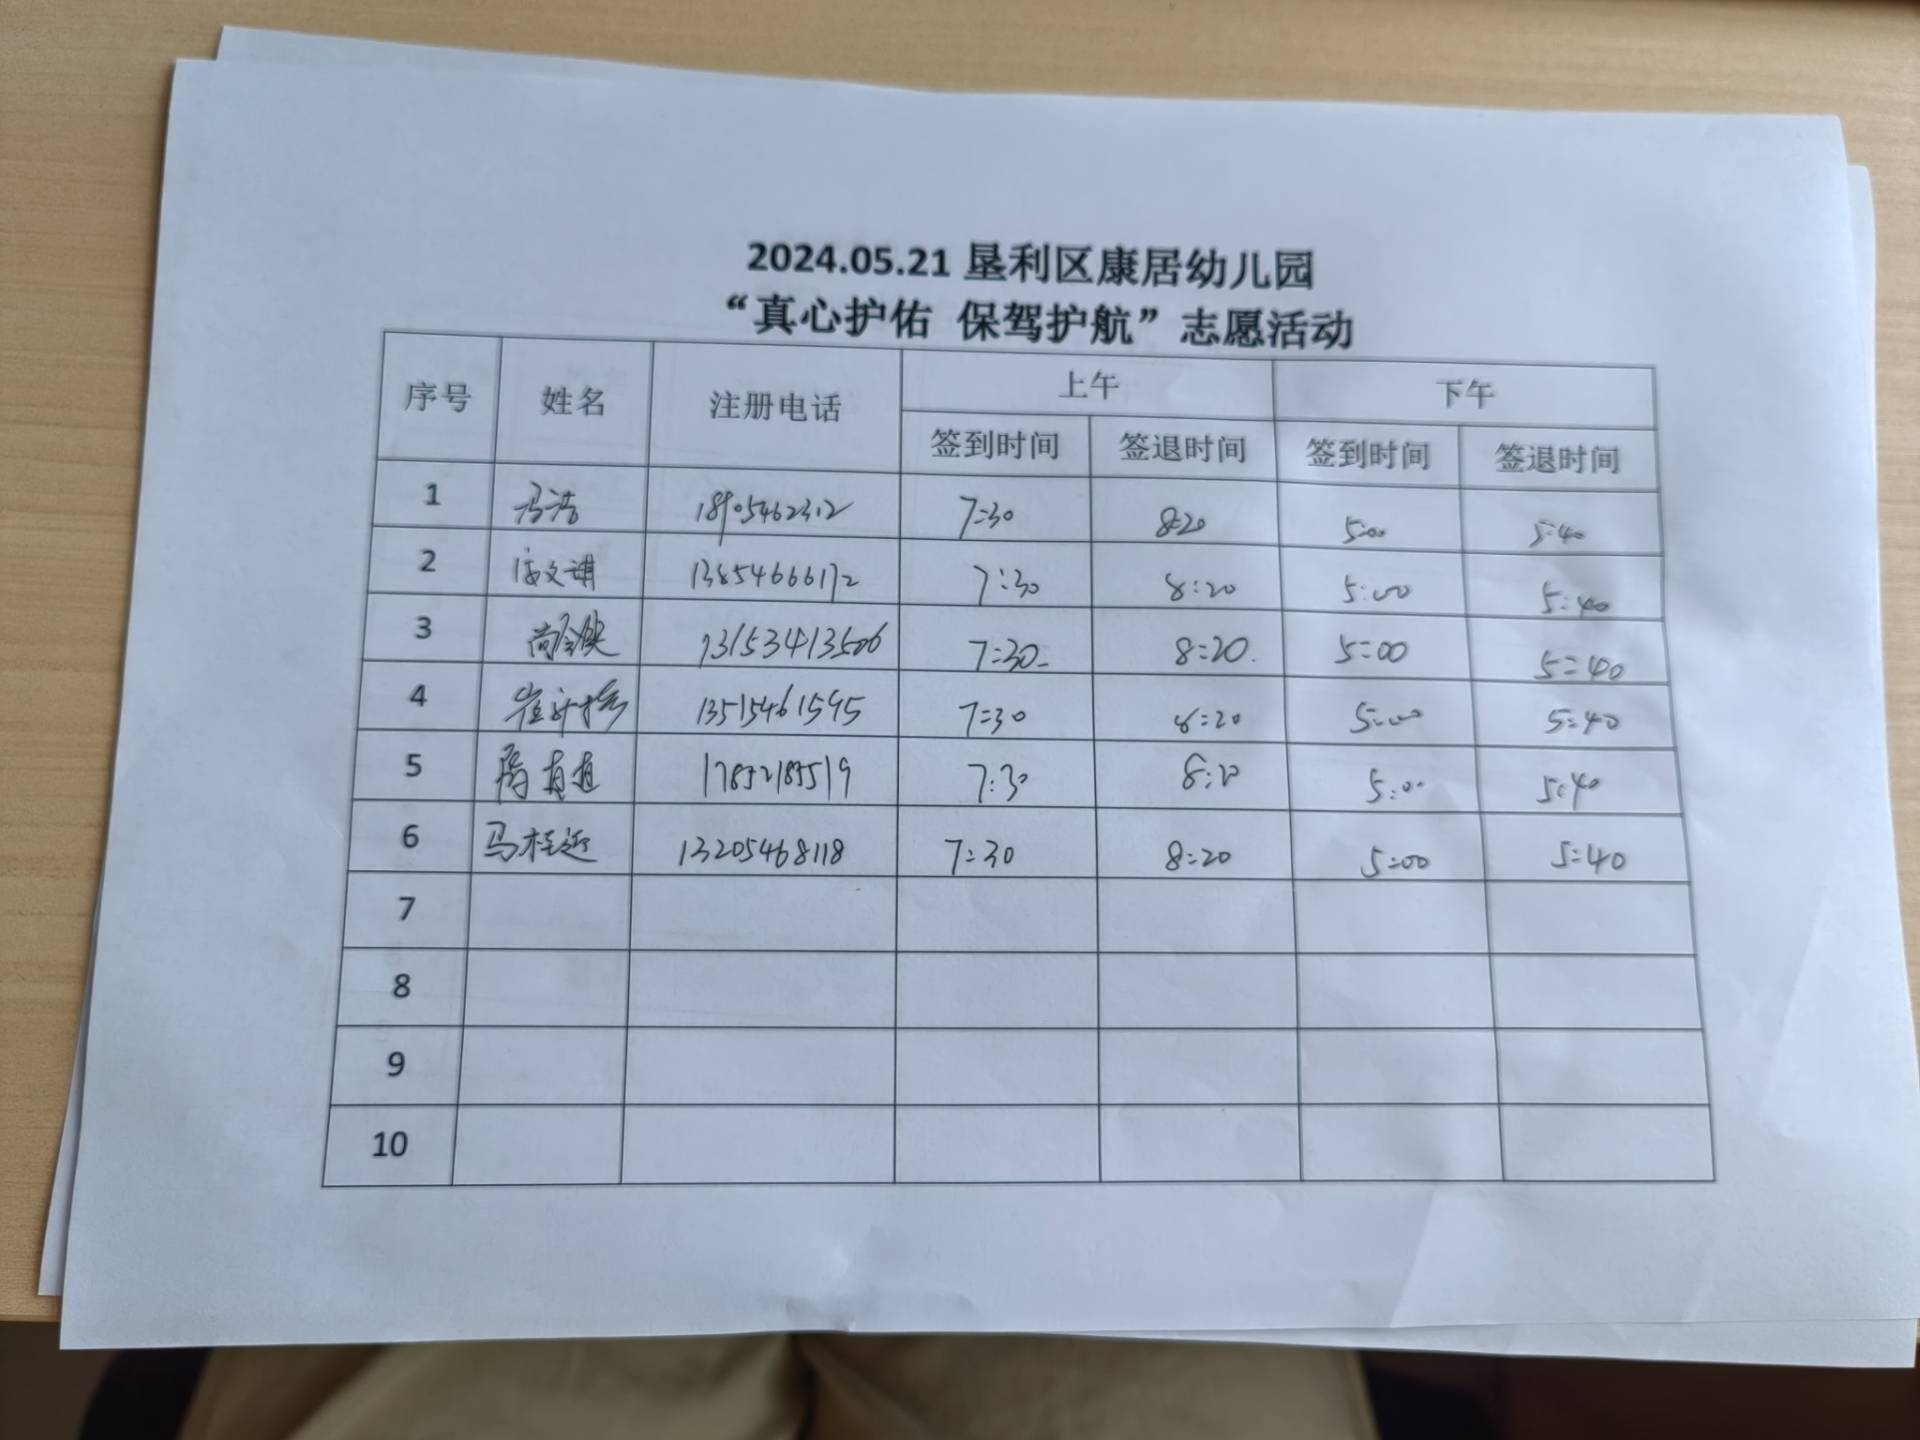 2024.05.21 垦利区康居幼儿园
“真心护佑 保驾护航”志愿活动
序号 姓名 注册电话 上午 下午
签到时间 签退时间 签到时间 签退时间
1 冯浩 18905462312 7:30 8:20 5:00 5:40
2 文 13854666172 7:30 8:20 5:00 5:40
3 尚 13153413506 7:30 8:20 5:00 5:40
4 崔 13515461595 7:30 8:20 5:00 5:40
5 17852185519 7:30 8:20 5:00 5:40
6 马桂 13205468118 7:30 8:20 5:00 5:40
7
8
9
10